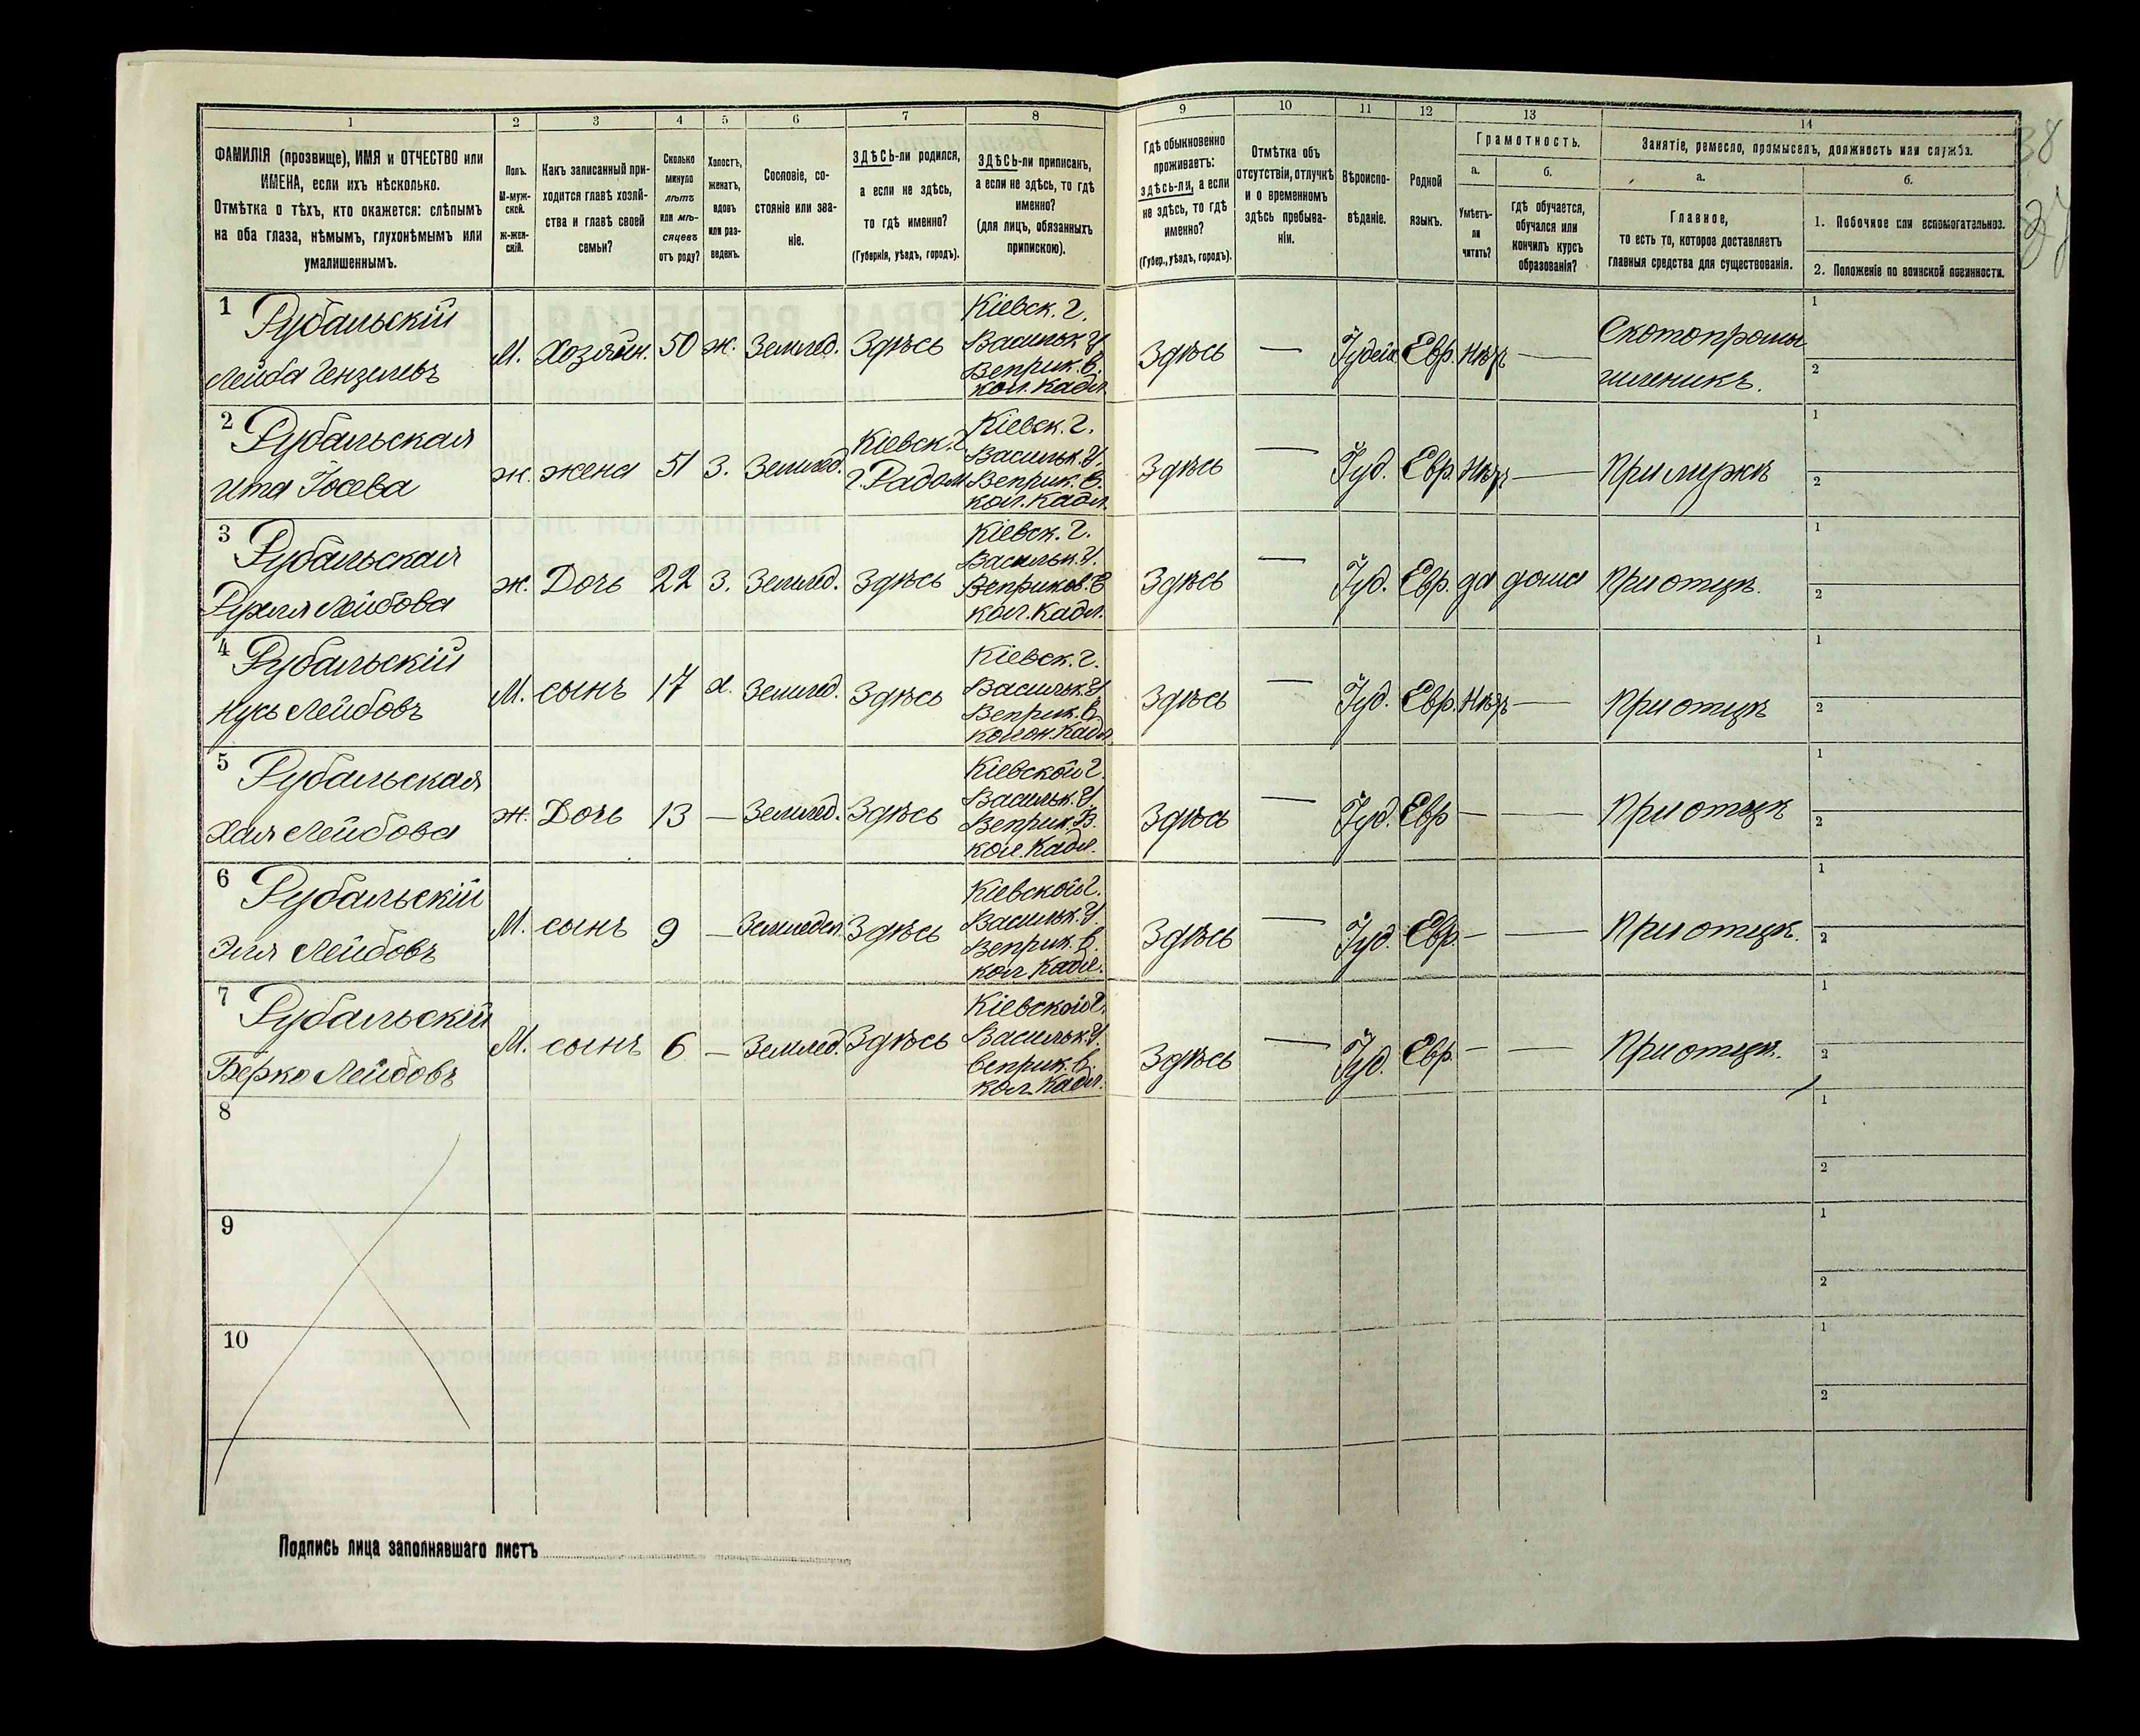 1 2 3 4 5 6 7 8 9 10 11 12 13 14
ФАМИЛІЯ (прозвище), ИМЯ и ОТЧЕСТВО или
ИМЕНА, если ихъ нѣсколько.
Отмѣтка о тѣхъ, кто окажется: слѣпымъ
на оба глаза, нѣмымъ, глухонѣмымъ или
умалишеннымъ.
Полъ.
М-муж-
ской.
ж-жен-
скій.
Какъ записанный при-
ходится главѣ хозяй-
ства и главѣ своей
семьи?
Сколько
минуло
лѣтъ
или мѣ-
сяцевъ
отъ роду?
Холостъ,
женатъ,
вдовъ
или раз-
веденъ.
Сословіе, со-
стояніе или зва-
ніе.
ЗДѢСЬ-ли родился,
а если не здѣсь,
то гдѣ именно?
(Губернія, уѣздъ, городъ).
ЗДѢСЬ-ли приписанъ,
а если не здѣсь, то гдѣ
именно?
(для лицъ, обязанныхъ
припискою).
Гдѣ обыкновенно
проживаетъ:
здѣсь-ли, а если
не здѣсь, то гдѣ
именно?
(Губер., уѣздъ, городъ).
Отмѣтка объ
отсутствіи, отлучкѣ
и о временномъ
здѣсь пребыва-
ніи.
Вѣроиспо-
вѣданіе.
Родной
языкъ.
Грамотность.
а.
Умѣетъ-
ли
читать?
б.
гдѣ обучается,
обучался или
кончилъ курсъ
образованія?
Занятіе, ремесло, промыселъ, должность или служба.
а.
Главное,
то есть то, которое доставляетъ
главныя средства для существованія.
б.
1. Побочное или вспомогательное.
2. Положеніе по воинской повинности.
38
37
1 Рубальскій
Лейба Гензелевъ
М. Хозяин. 50 ж. Землед. Здѣсь
Кіевск. г.
Васильк. У
Веприк. В.
кол. Кадл.
Здѣсь — Іудейск. Евр. Нѣт —
Скотопромы
шленикъ.
1
2
2 Рубальская
Ита Іосева
ж. жена 51 З. Землед.
Кіевск. г.
г. Радом.
Кіевск. г.
Васильк. У.
Веприк. В.
кол. Кадл.
Здѣсь — Іуд. Евр. Нѣт — При мужѣ
1
2
3 Рубальская
Рухля Лейбова
ж. Дочь 22 З. Землед. Здѣсь
Кіевск. г.
Васильк. У.
Веприков. В
кол. Кадл.
Здѣсь — Іуд. Евр. да дома При отцѣ.
1
2
4 Рубальскій
Нусь Лейбовъ
М. сынъ 17 х. Землед. Здѣсь
Кіевск. г.
Васильк. У
Веприк. В.
колон. Кадл.
Здѣсь — Іуд. Евр. Нѣт — При отцѣ
1
2
5 Рубальская
Хая Лейбова
ж. Дочь 13 — Землед. Здѣсь
Кіевской г.
Васильк. У.
Веприк. В.
кол. Кадл.
Здѣсь — Іуд. Евр — — При отцѣ
1
2
6 Рубальскій
Эля Лейбовъ
М. сынъ 9 — Земледел. Здѣсь
Кіевской г.
Васильк. У.
Веприк. В.
кол Кадл.
Здѣсь — Іуд. Евр. — — При отцѣ.
1
2
7 Рубальскій
Берко Лейбовъ
М. сынъ 6 — Землед. Здѣсь
Кіевской г.
Васильк. У.
Веприк. В.
кол. Кадл.
Здѣсь — Іуд. Евр. — — При отцѣ.
1
2
8
1
2
9
1
2
10
1
2
Подпись лица заполнявшаго листъ